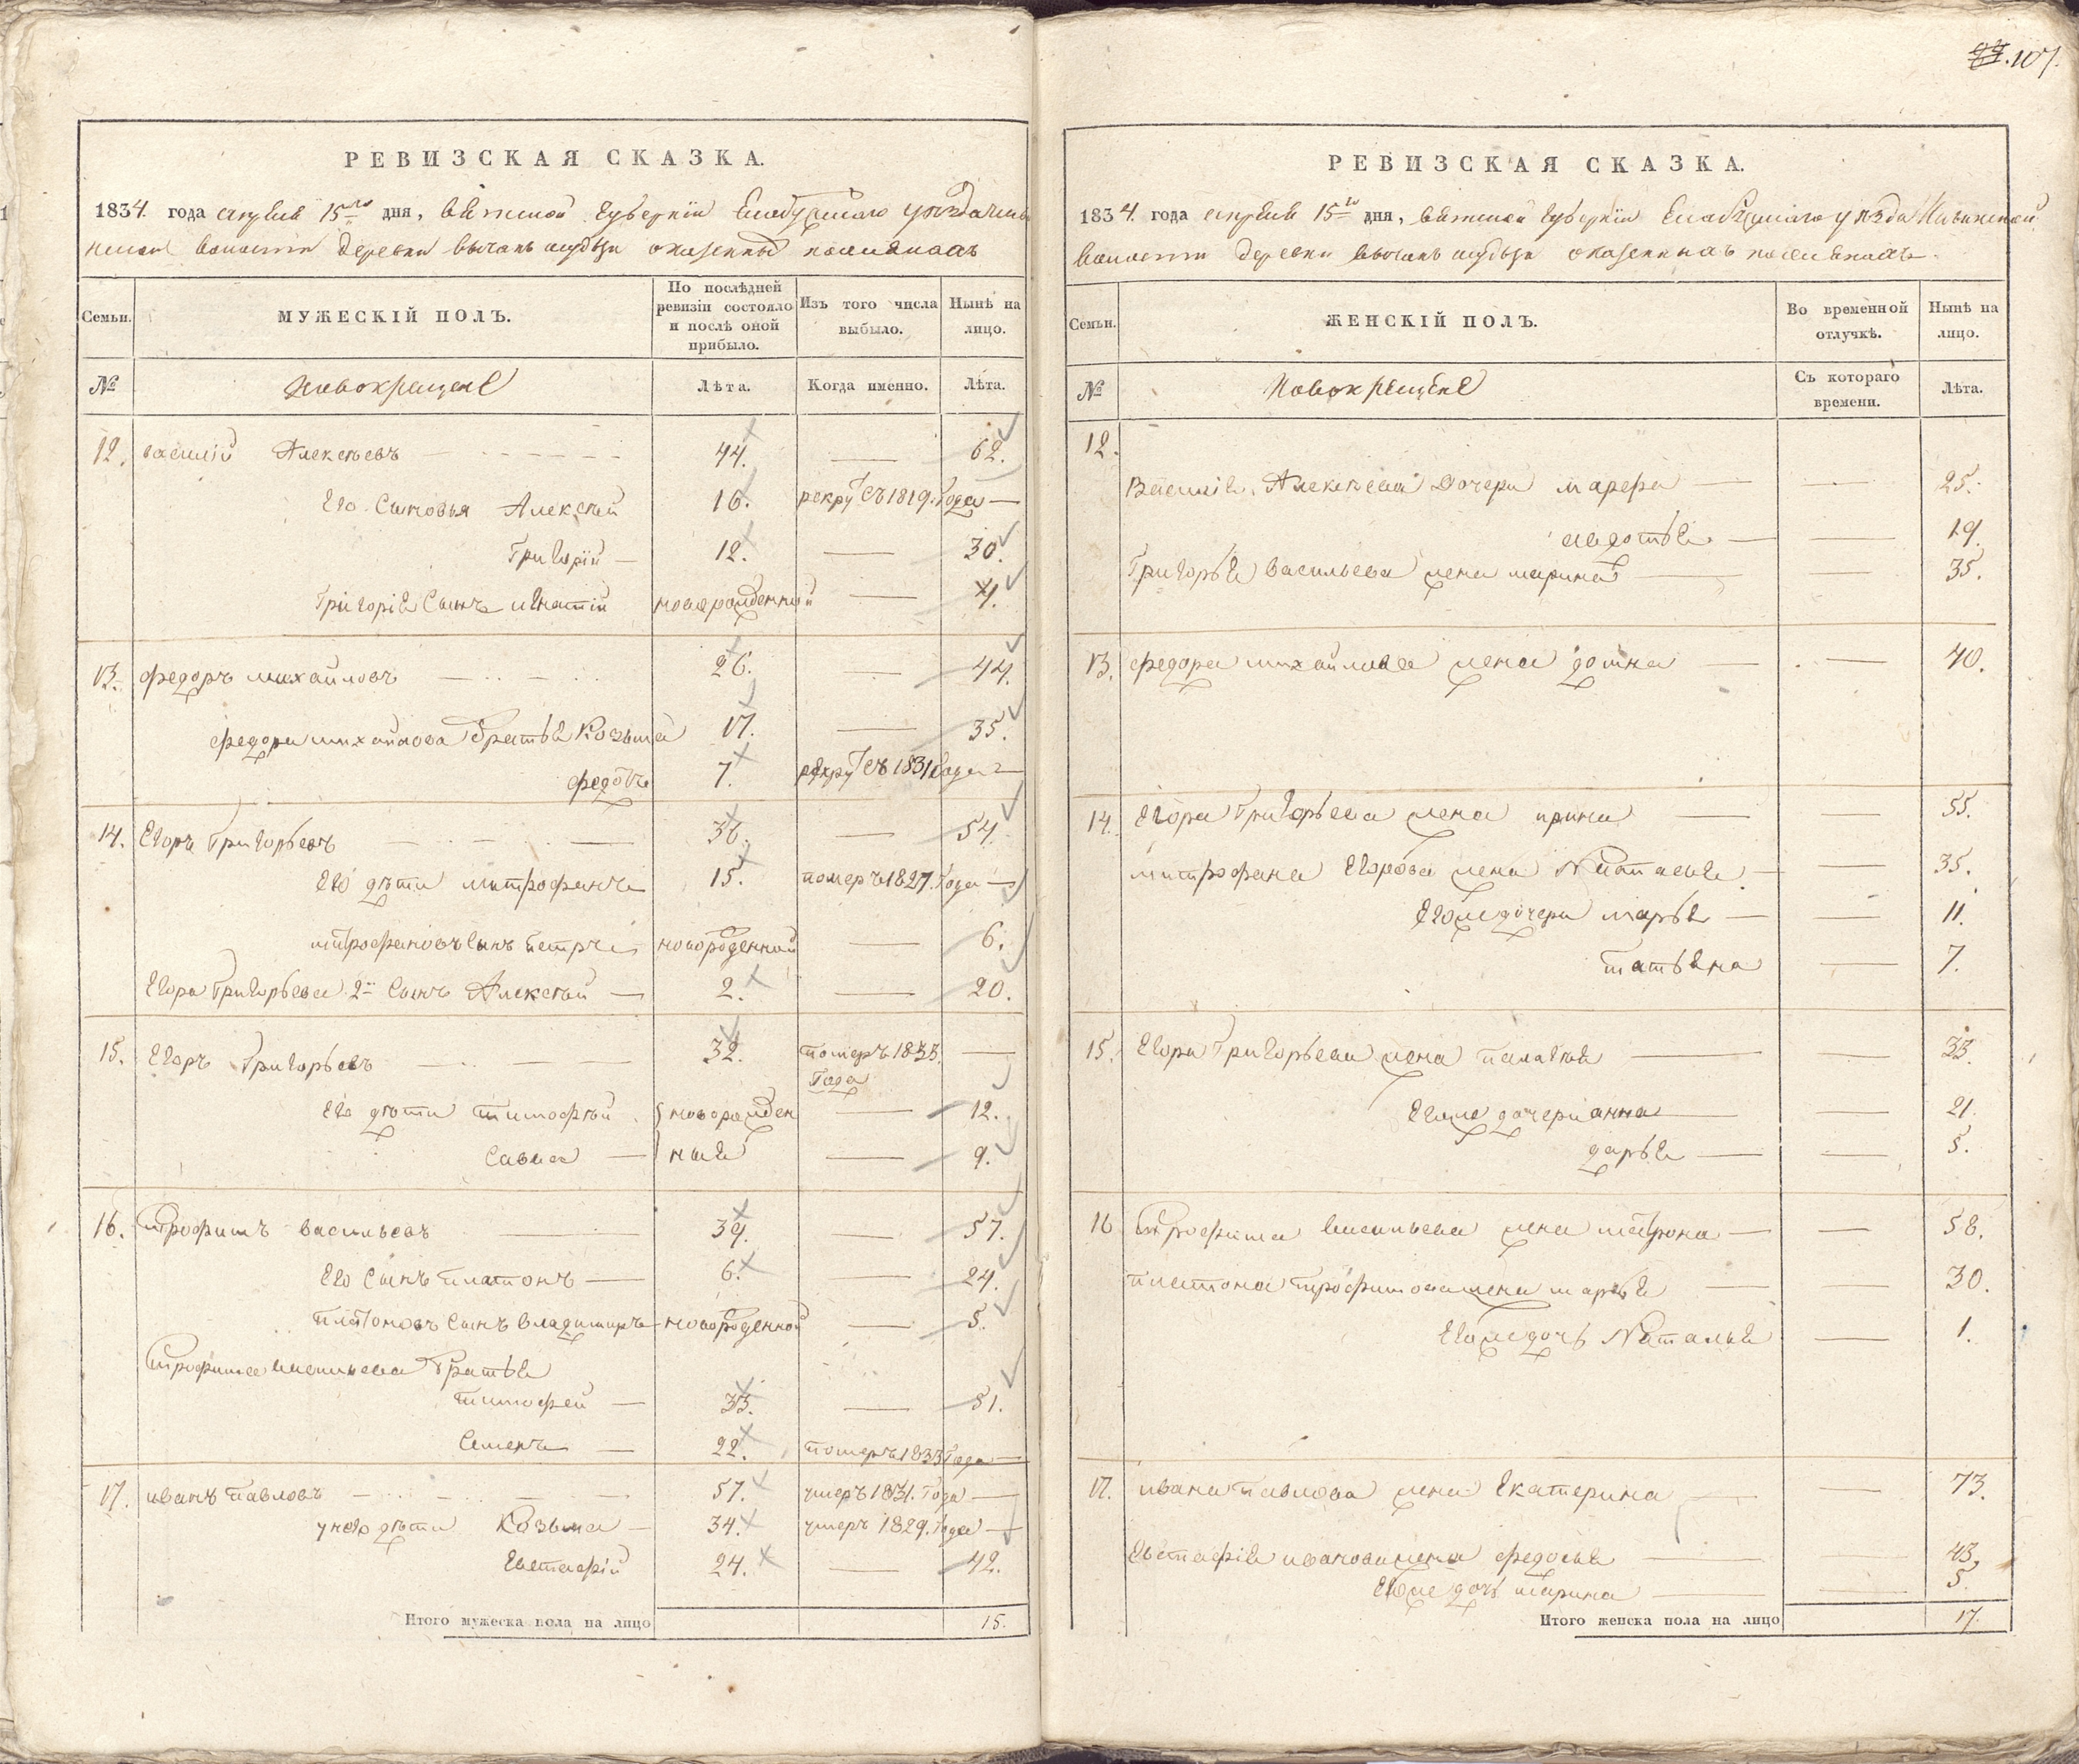 107.
РЕВИЗСКАЯ СКАЗКА.
1834. года апреля 15го дня, вятской губернiи Елабужского уезда
волости деревни оказенныхъ поселянахъ
Семьи.
МУЖЕСКІЙ ПОЛЪ.
По послѣдней ревизіи состояло и послѣ оной прибыло.
Изъ того числа выбыло.
Нынѣ на лицо.
№
Новокрещене
Лѣта.
Когда именно.
Лѣта.
12. василiй Алексѣевъ 44. — 62.
Его Сыновья Алексѣй 16. рекрутъ съ 1819. Года —
Григорiй — 12. — 30.
Григорiя Сынъ игнатiй новорожденной — 4.
13. федоръ михайловъ 26. — 44.
федора михайлова братья Козьма 17. — 35.
федотъ 7. рекрутъ съ 1831 Года —
14. Егоръ Григорьевъ 36. — 54.
Его дѣти митрофанъ 15. померъ 1827. Года —
митрофановъ Сынъ петръ новорожденной — 6.
Егора Григорьева 2й Сынъ Алексѣй — 2. — 20.
15. Егоръ Григорьевъ 32. померъ 1833. Года —
Его дѣти тимофѣй новорожден — 12.
Савва — ныя — 9.
16. трофимъ васильевъ 39. — 57.
Его Сынъ платонъ — 6. — 24.
платоновъ Сынъ владимиръ новорожденной — 5.
трофима васильева братья
тимофей — 33. — 51.
Семенъ — 22. померъ 1833 Года —
17. иванъ павловъ 57. умеръ 1831. Года —
у него дѣти Козьма — 34. умеръ 1829. Года —
Евстафiй 24. — 42.
Итого мужеска пола на лицо 15.
РЕВИЗСКАЯ СКАЗКА.
1834. года апреля 15го дня, вятской губернiи Елабужского уезда
волости деревни оказенныхъ поселянахъ.
Семьи.
ЖЕНСКІЙ ПОЛЪ.
Во временной отлучкѣ.
Нынѣ на лицо.
№
Новокрещене
Съ котораго времени.
Лѣта.
12.
Василiя Алексѣева Дочери марфа — — 25.
авдотья — — 19.
Григорья васильева жена марина — — 35.
13. федора михайлова жена домна — — 40.
14. Егора Григорьева жена ирина — — 55.
митрофана Егорова жена Настасья — — 35.
Егоже дочери марья — — 11.
татьяна — 7.
15. Егора Григорьева жена палагея — — 33.
Егоже дочери анна — — 21.
дарья — — 5.
16 трофима васильева жена матрона — — 58.
платона трофимова жена марья — — 30.
Егоже дочь Наталья — 1.
17. ивана павлова жена Екатерина — — 73.
Евстафiя иванова жена федосья — — 43.
Егоже дочь марина — — 5.
Итого женска пола на лицо 17.